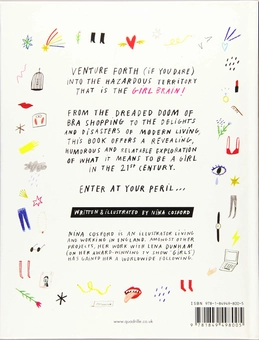 VENTURE FORTH (IF YOU DARE)
INTO THE HAZARDOUS TERRITORY
THAT IS THE GIRL BRAIN!
FROM THE DREADED DOOM OF
BRA SHOPPING TO THE DELIGHTS
AND DISASTERS OF MODERN LIVING,
THIS BOOK OFFERS A REVEALING,
HUMOROUS AND RELATABLE EXPLORATION
OF WHAT IT MEANS TO BE A GIRL
IN THE 21ST CENTURY.
ENTER AT YOUR PERIL...
WRITTEN & ILLUSTRATED BY NINA COSFORD
NINA COSFORD IS AN ILLUSTRATOR LIVING
AND WORKING IN ENGLAND. AMONGST OTHER
PROJECTS, HER WORK WITH LENA DUNHAM
(ON HER AWARD-WINNING TV SHOW 'GIRLS')
HAS GAINED HER A WORLDWIDE FOLLOWING.
ISBN 978-1-84949-800-5
9 781849 498005
www.quadrille.co.uk